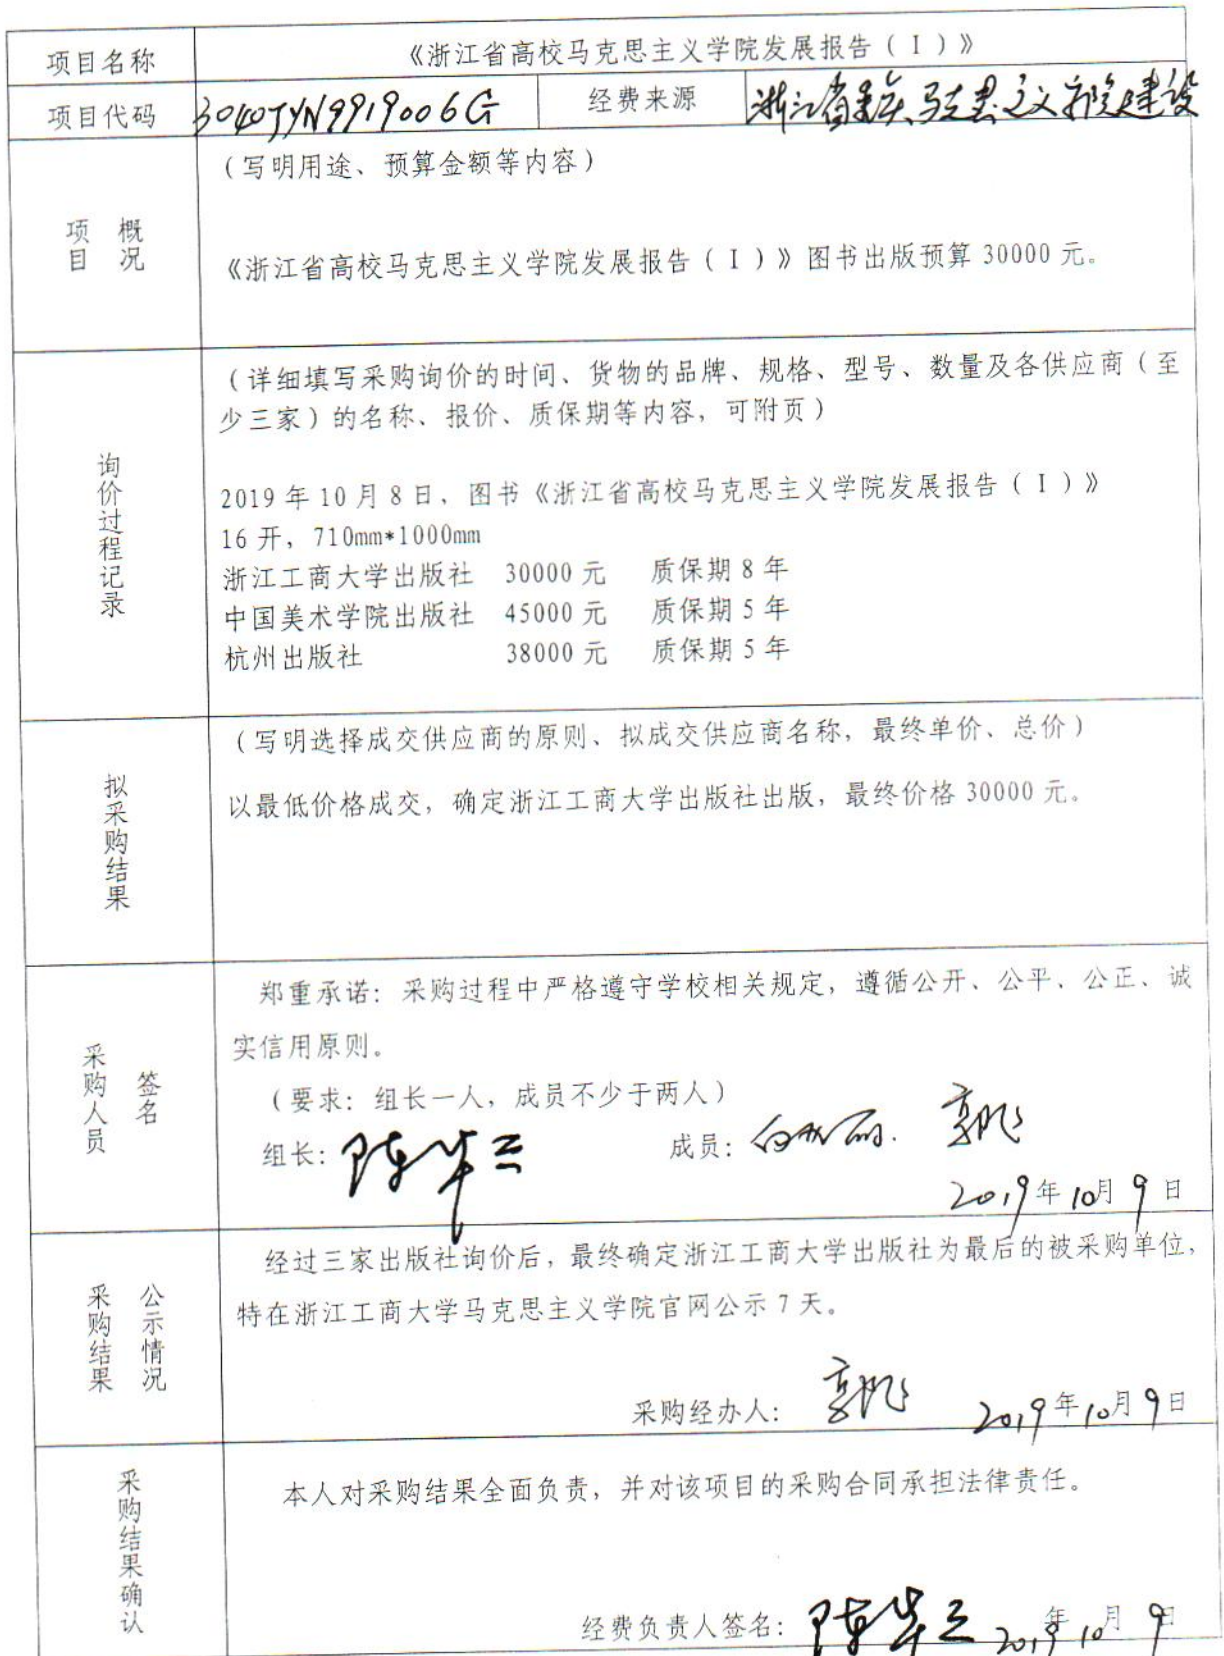 项目名称 《浙江省高校马克思主义学院发展报告（I）》
项目代码 3040JYN9919006G 经费来源 浙江省重点马克思主义学院建设
项目概况
（写明用途、预算金额等内容）
《浙江省高校马克思主义学院发展报告（I）》图书出版预算 30000 元。
询价过程记录
（详细填写采购询价的时间、货物的品牌、规格、型号、数量及各供应商（至
少三家）的名称、报价、质保期等内容，可附页）
2019 年 10 月 8 日，图书《浙江省高校马克思主义学院发展报告（I）》
16 开，710mm*1000mm
浙江工商大学出版社 30000 元 质保期 8 年
中国美术学院出版社 45000 元 质保期 5 年
杭州出版社 38000 元 质保期 5 年
拟采购结果
（写明选择成交供应商的原则、拟成交供应商名称，最终单价、总价）
以最低价格成交，确定浙江工商大学出版社出版，最终价格 30000 元。
采购人员签名
郑重承诺：采购过程中严格遵守学校相关规定，遵循公开、公平、公正、诚
实信用原则。
（要求：组长一人，成员不少于两人）
组长：陈华兰 成员：
2019年10月9日
采购结果公示情况
经过三家出版社询价后，最终确定浙江工商大学出版社为最后的被采购单位，
特在浙江工商大学马克思主义学院官网公示 7 天。
采购经办人： 2019年10月9日
采购结果确认
本人对采购结果全面负责，并对该项目的采购合同承担法律责任。
经费负责人签名：陈华兰 2019年10月9日